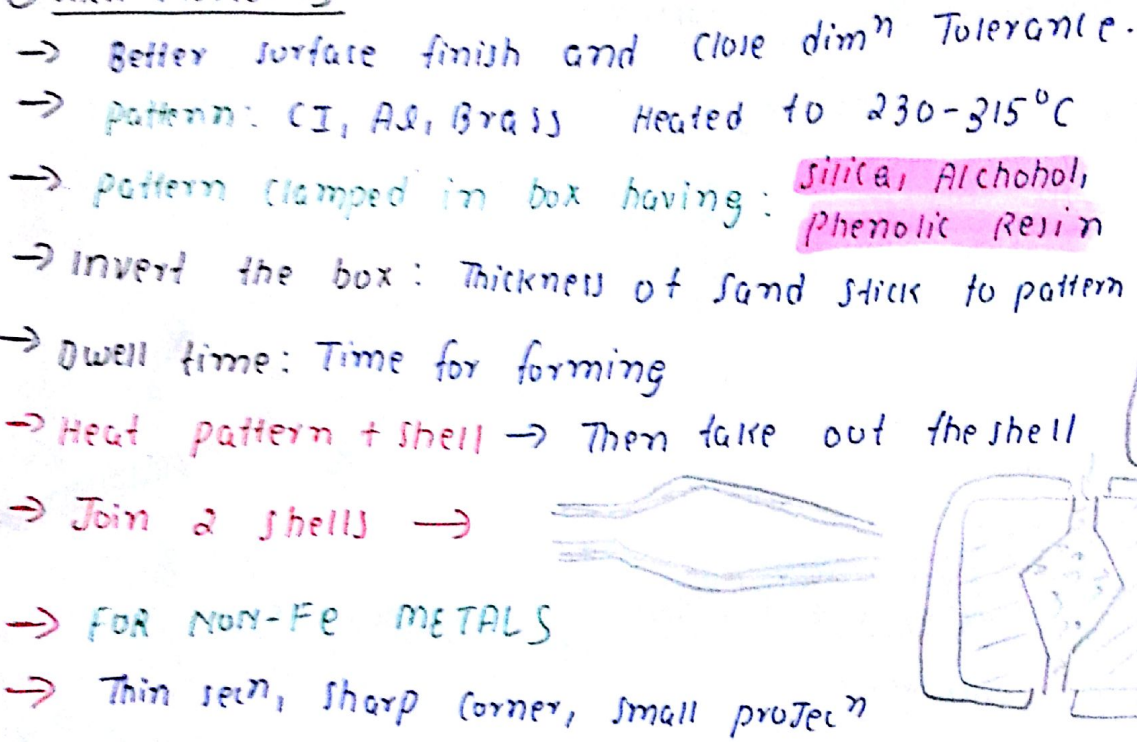 → Better surface finish and close dimⁿ Tolerance.
→ pattern: CI, Al, Brass Heated to 230-315°C
→ pattern clamped in box having: silica, Alchohol,
phenolic Resin
→ invert the box: Thickness of sand stick to pattern
→ Dwell time: Time for forming
→ Heat pattern + shell → Then take out the shell
→ Join 2 shells →
→ FOR NON-Fe METALS
→ Thin secⁿ, sharp corner, small projecⁿ